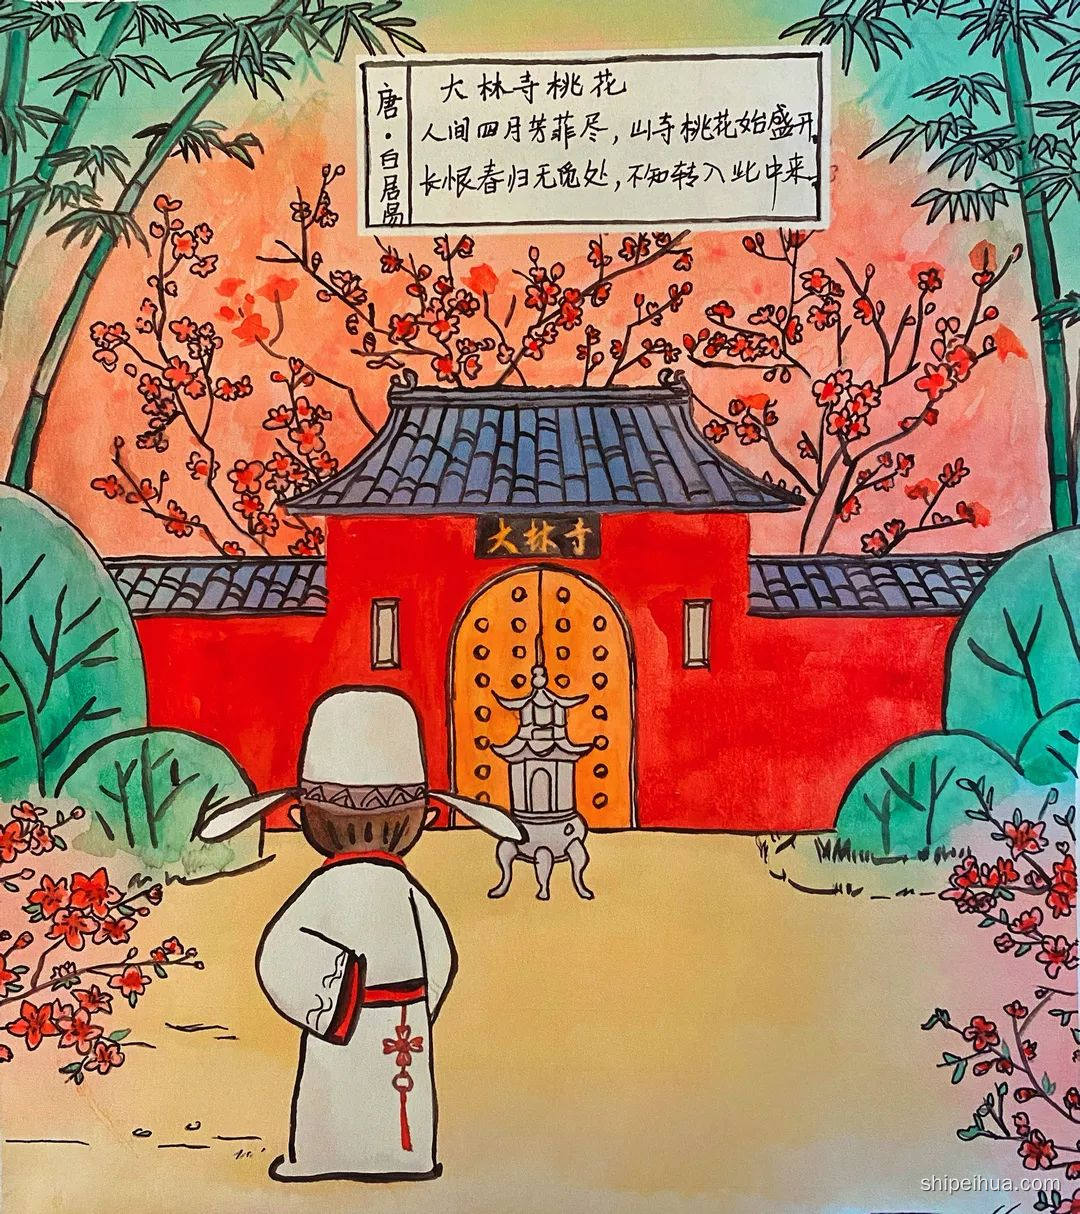 大林寺桃花
唐·白居易
人间四月芳菲尽,山寺桃花始盛开.
长恨春归无觅处,不知转入此中来.
大林寺
shipeihua.com